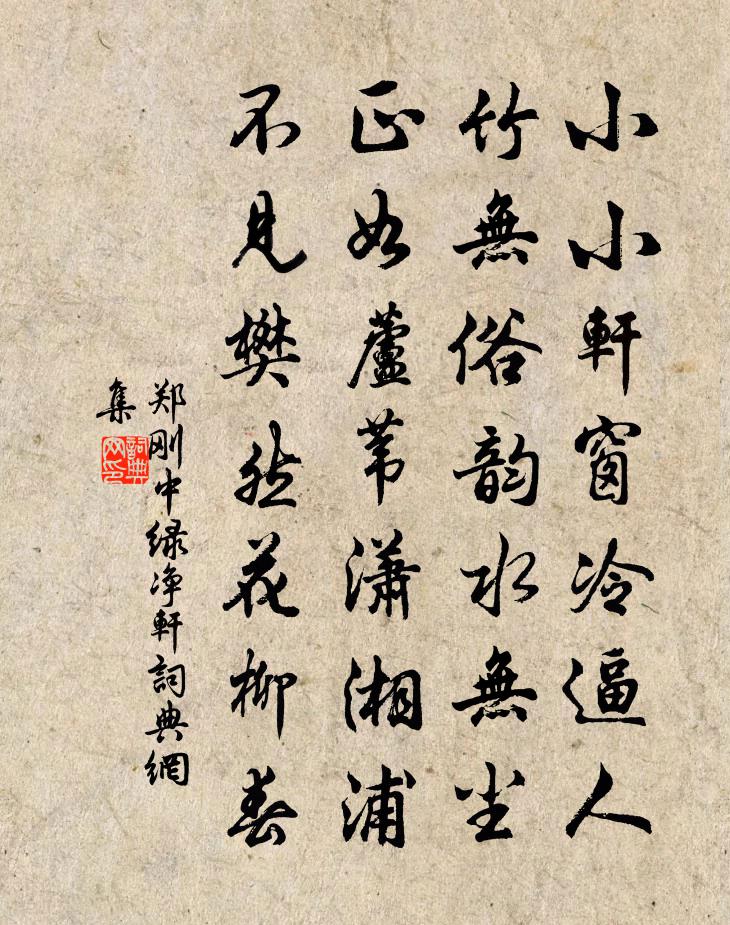 小小軒窗冷逼人
竹無俗韵水無尘
正如蘆苇瀟湘浦
不見樊然花柳春
郑刚中绿净軒詞典網
集
詞典
网印